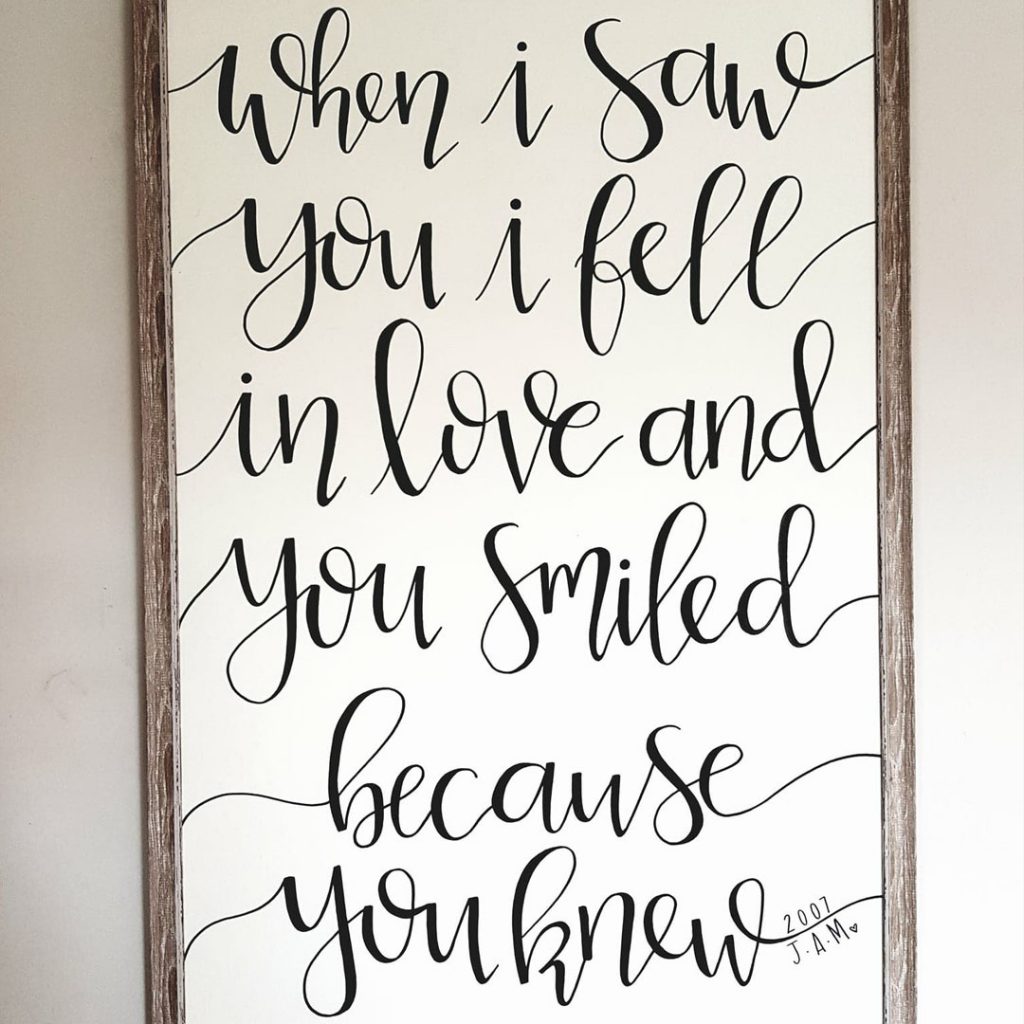 when i saw
you i fell
in love and
you smiled
because
you knew
2007
J.A.M♥